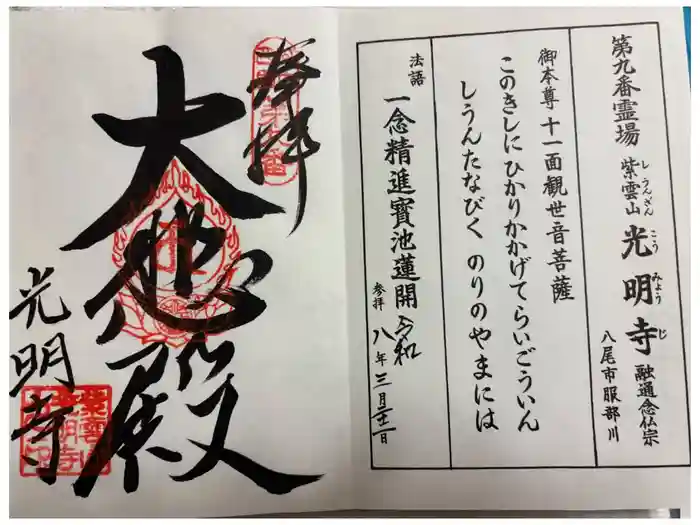 第九番霊場 紫雲山 光明寺 融通念仏宗
しうんざん こうみょうじ
八尾市服部川
御本尊 十一面観世音菩薩
このきしに ひかりかかげてらいごういん
しうんたなびく のりのやまには
法語 一念精進寶池蓮開
参拝 令和八年三月
奉拝
大悲殿
光明寺